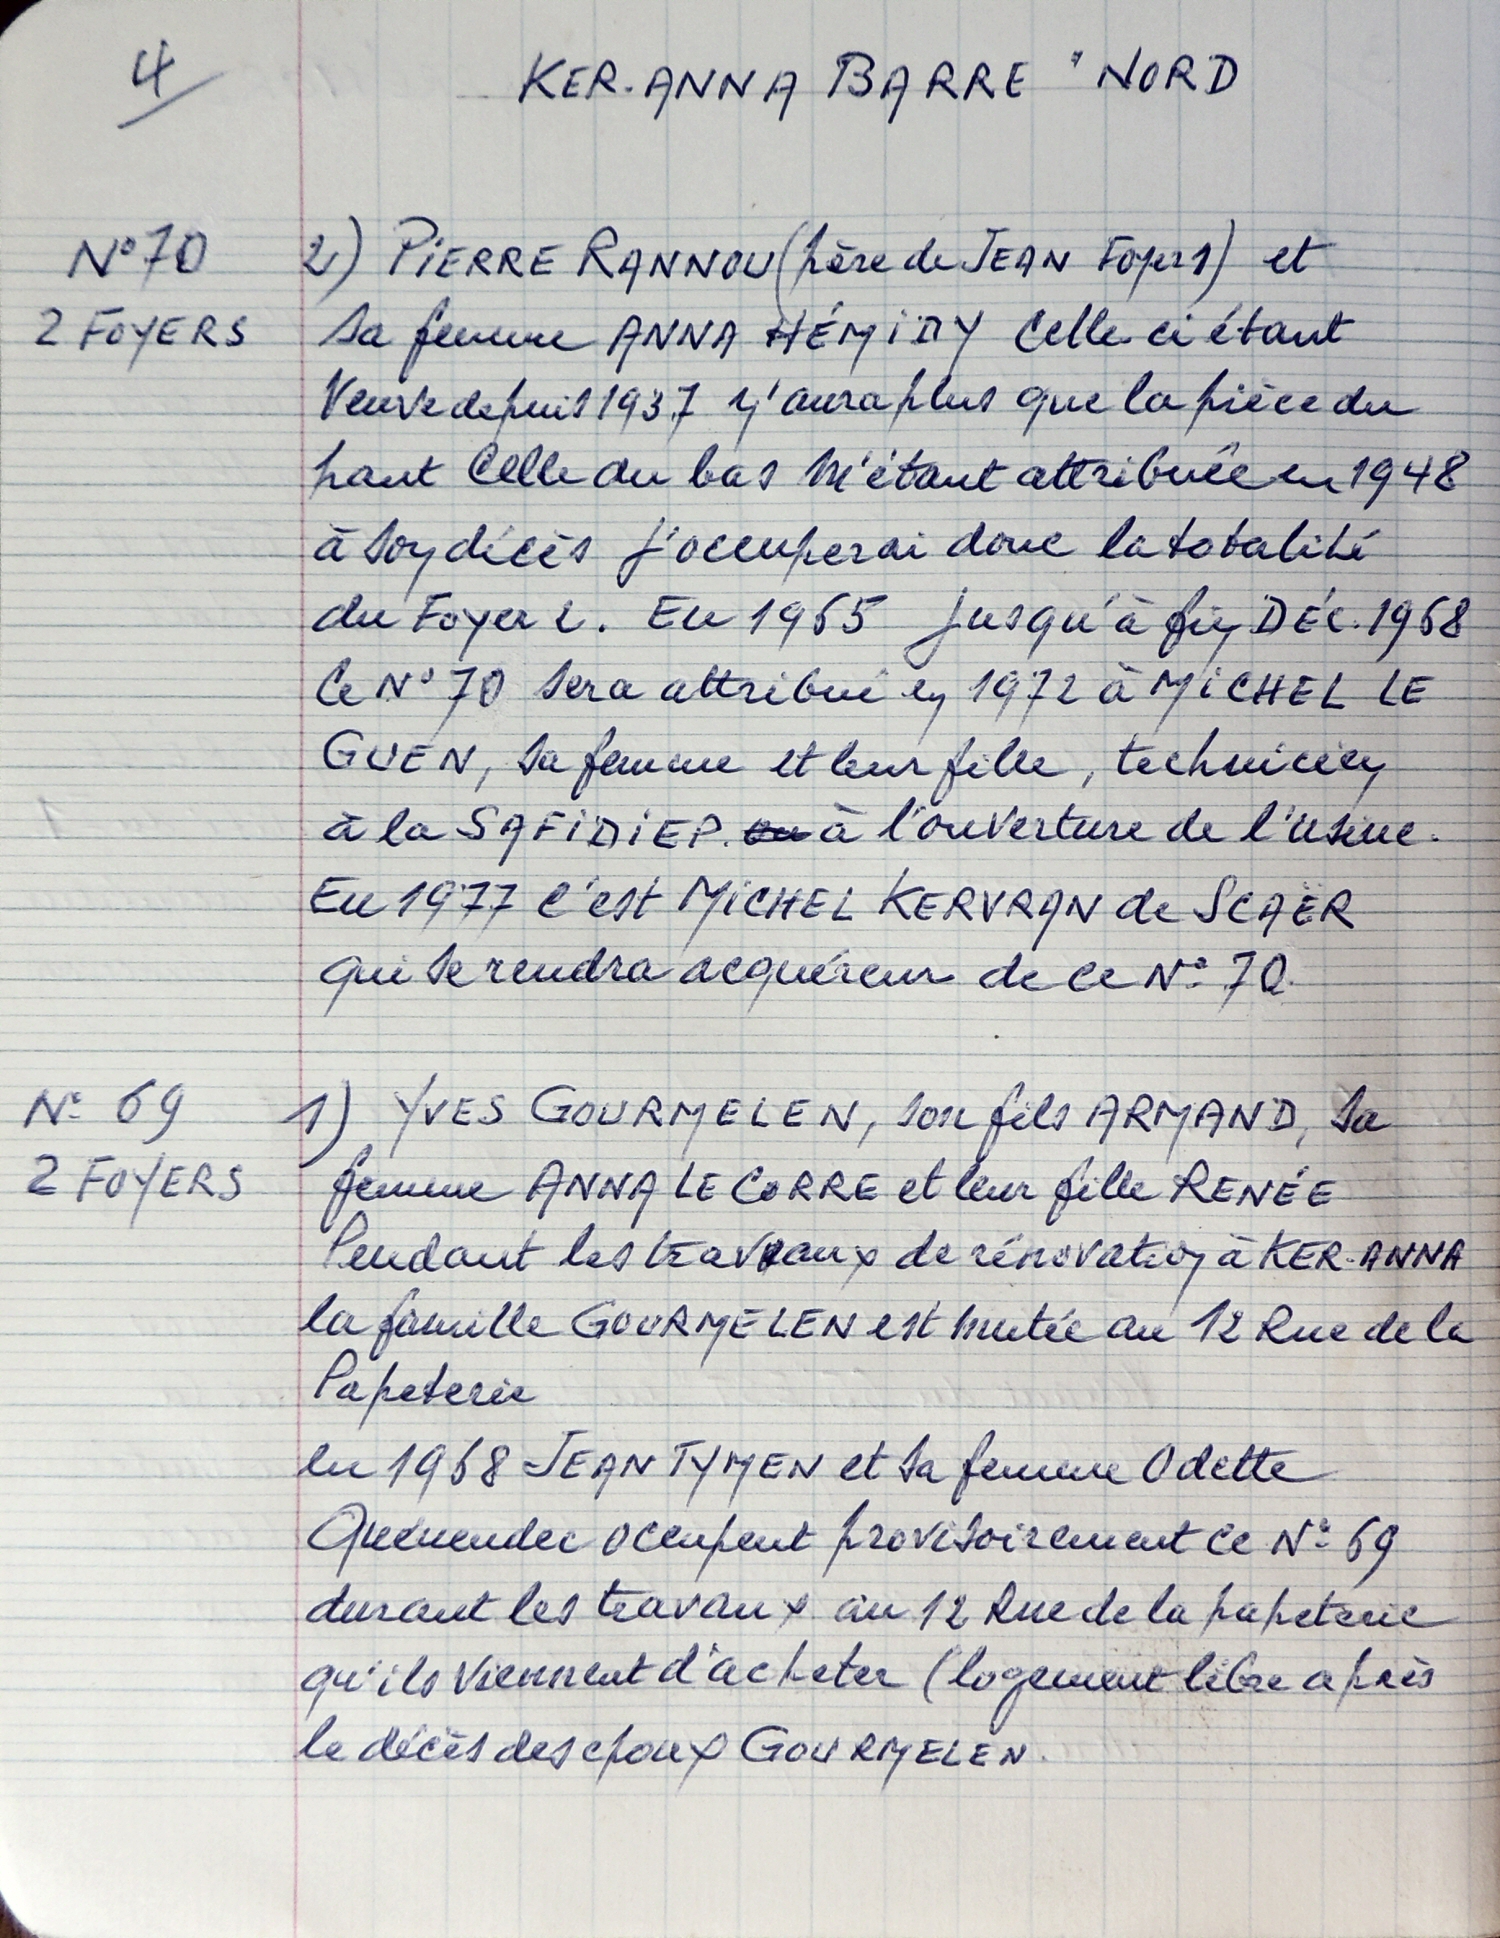 4
KER-ANNA BARRE "NORD
N° 70
2 FOYERS
2) PIERRE RANNOU (père de JEAN Foyer 1) et
sa femme ANNA HÉMIDY Celle ci étant
Veuve depuis 1937 n'aura plus que la pièce du
haut Celle du bas m'étant attribuée en 1948
à son décès j'occuperai donc la totalité
du Foyer 2. En 1965 jusqu'à fin DÉC. 1968
Ce N° 70 sera attribué en 1972 à MICHEL LE
GUEN, sa femme et leur fille, technicien
à la SAFIDIEP. à l'ouverture de l'usine.
En 1977 c'est MICHEL KERVRAN de SCAËR
qui se rendra acquéreur de ce N° 70.
N° 69
2 FOYERS
1) YVES GOURMELEN, son fils ARMAND, sa
femme ANNA LE CORRE et leur fille RENÉE
Pendant les travaux de rénovation à KER-ANNA
la famille GOURMELEN est mutée au 12 Rue de la
Papeterie
en 1968 JEAN TYMEN et sa femme Odette
Quénendec occupent provisoirement ce N° 69
durant les travaux au 12 Rue de la papeterie
qu'ils viennent d'acheter (logement libre après
le décès des époux GOURMELEN.